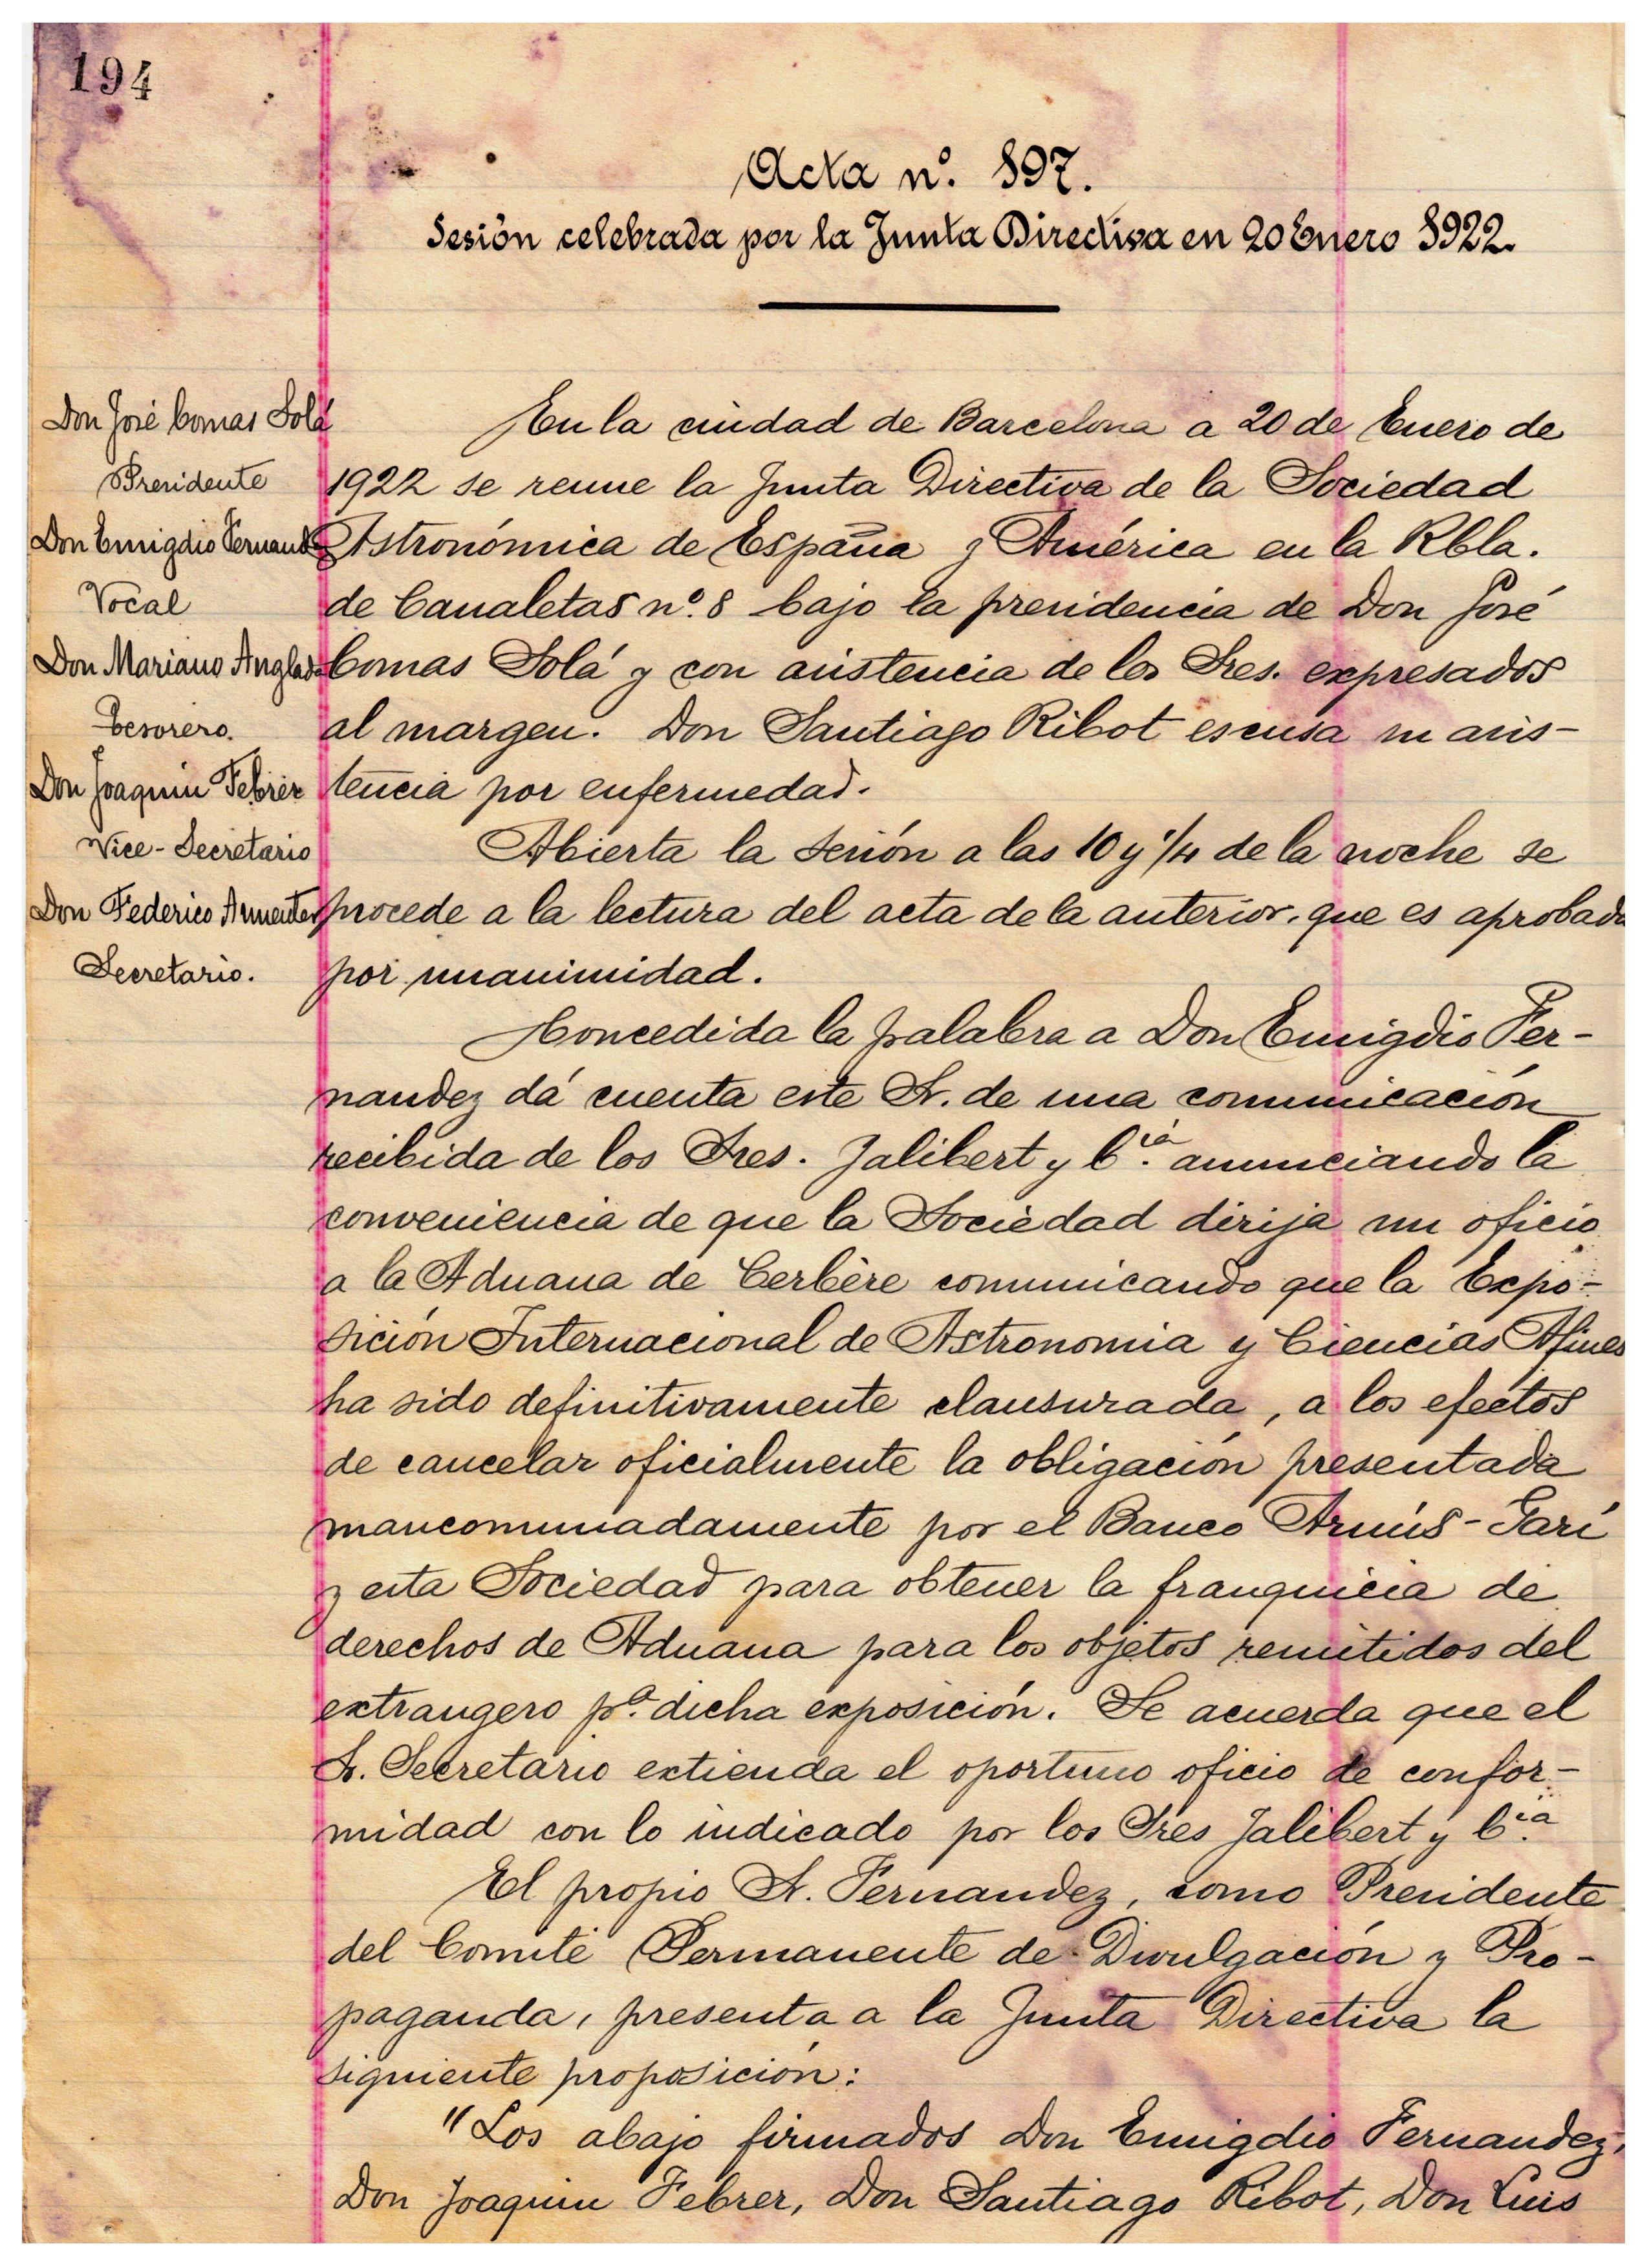 194
Acta nº. 197.
Sesión celebrada por la Junta Directiva en 20 Enero 1922.
Don José Comas Solá
Presidente
Don Emigdio Fernandez
Vocal
Don Mariano Anglada
Tesorero.
Don Joaquin Febrer
Vice-Secretario
Don Federico Armenter
Secretario.
En la ciudad de Barcelona a 20 de Enero de
1922 se reune la Junta Directiva de la Sociedad
Astronómica de España y América en la Rbla.
de Canaletas nº. 8 bajo la presidencia de Don José
Comas Solá y con asistencia de los Sres. expresados
al margen. Don Santiago Ribot escusa su asis-
tencia por enfermedad.
Abierta la sesión a las 10 y 1/4 de la noche se
procede a la lectura del acta de la anterior, que es aprobada
por unanimidad.
Concedida la palabra a Don Emigdio Fer-
nandez dá cuenta este Sr. de una comunicación
recibida de los Sres. Jalibert y Cia. anunciando la
conveniencia de que la Sociedad dirija un oficio
a la Aduana de Cerbère comunicando que la Expo-
sición Internacional de Astronomia y Ciencias Afines
ha sido definitivamente clausurada, a los efectos
de cancelar oficialmente la obligación presentada
mancomunadamente por el Banco Arnús-Garí
y esta Sociedad para obtener la franquicia de
derechos de Aduana para los objetos remitidos del
extrangero pª. dicha exposición. Se acuerda que el
Sr. Secretario extienda el oportuno oficio de confor-
midad con lo indicado por los Sres Jalibert y Cia.
El propio Sr. Fernandez, como Presidente
del Comité Permanente de Divulgación y Pro-
paganda, presenta a la Junta Directiva la
siguiente proposición:
"Los abajo firmados Don Emigdio Fernandez,
Don Joaquin Febrer, Don Santiago Ribot, Don Luis